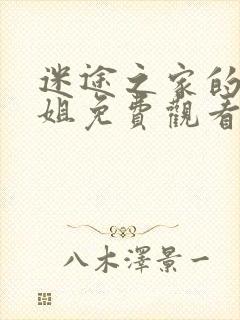 迷途之家的
姐免費觀看
八木澤景一